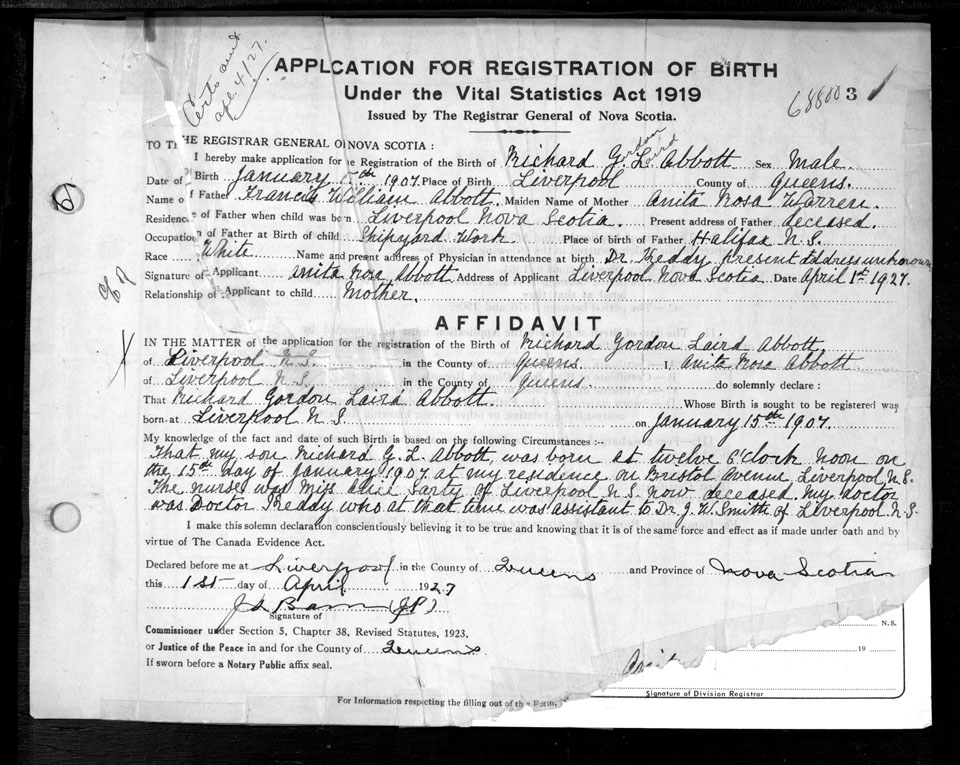 Certs sent
apl. 4/27.
APPLCATION FOR REGISTRATION OF BIRTH
Under the Vital Statistics Act 1919
Issued by The Registrar General of Nova Scotia.
68800 3
TO T HE REGISTRAR GENERAL O NOVA SCOTIA :
I hereby make application for e Registration of the Birth of Richard Gordon Laird Abbott Sex Male.
Date of Birth January 15th 1907. Place of Birth Liverpool County of Queens.
Name o f Father Francis William Abbott. Maiden Name of Mother Anita Rosa Warren.
Residenc e of Father when child was born Liverpool Nova Scotia. Present address of Father deceased.
Occupation of Father at Birth of child Shipyard Work Place of birth of Father Halifax N.S.
Race White Name and present address of Physician in attendance at birth Dr. Keddy present address unknown
Signature of Applicant Anita Rosa Abbott Address of Applicant Liverpool Nova Scotia Date April 1st 1927.
Relationship of Applicant to child Mother.
AFFIDAVIT
IN THE MATTER of the application for the registration of the Birth of Richard Gordon Laird Abbott
of Liverpool N.S. in the County of Queens I, Anita Rosa Abbott
of Liverpool N.S. in the County of Queens. do solemnly declare :
That Richard Gordon Laird Abbott. Whose Birth is sought to be registered was
born at Liverpool N.S. on January 15th 1907.
My knowledge of the fact and date of such Birth is based on the following Circumstances :--
That my son Richard G. L. Abbott was born at twelve o'clock noon on
the 15th day of January 1907 at my residence on Bristol Avenue, Liverpool, N.S.
The nurse was Miss Alice Sarty of Liverpool N.S. now deceased. My doctor
was Doctor Keddy who at that time was assistant to Dr. J. W. Smith of Liverpool N.S.
I make this solemn declaration conscientiously believing it to be true and knowing that it is of the same force and effect as if made under oath and by
virtue of The Canada Evidence Act.
Declared before me at Liverpool in the County of Queens and Province of Nova Scotia
this 1st day of April 1927
(J.P.)
Signature of
Commissioner under Section 5, Chapter 38, Revised Statutes, 1923,
or Justice of the Peace in and for the County of Queens.
If sworn before a Notary Public affix seal.
N.S.
19
Signature of Division Registrar
For Information respecting the filling out of the Form,